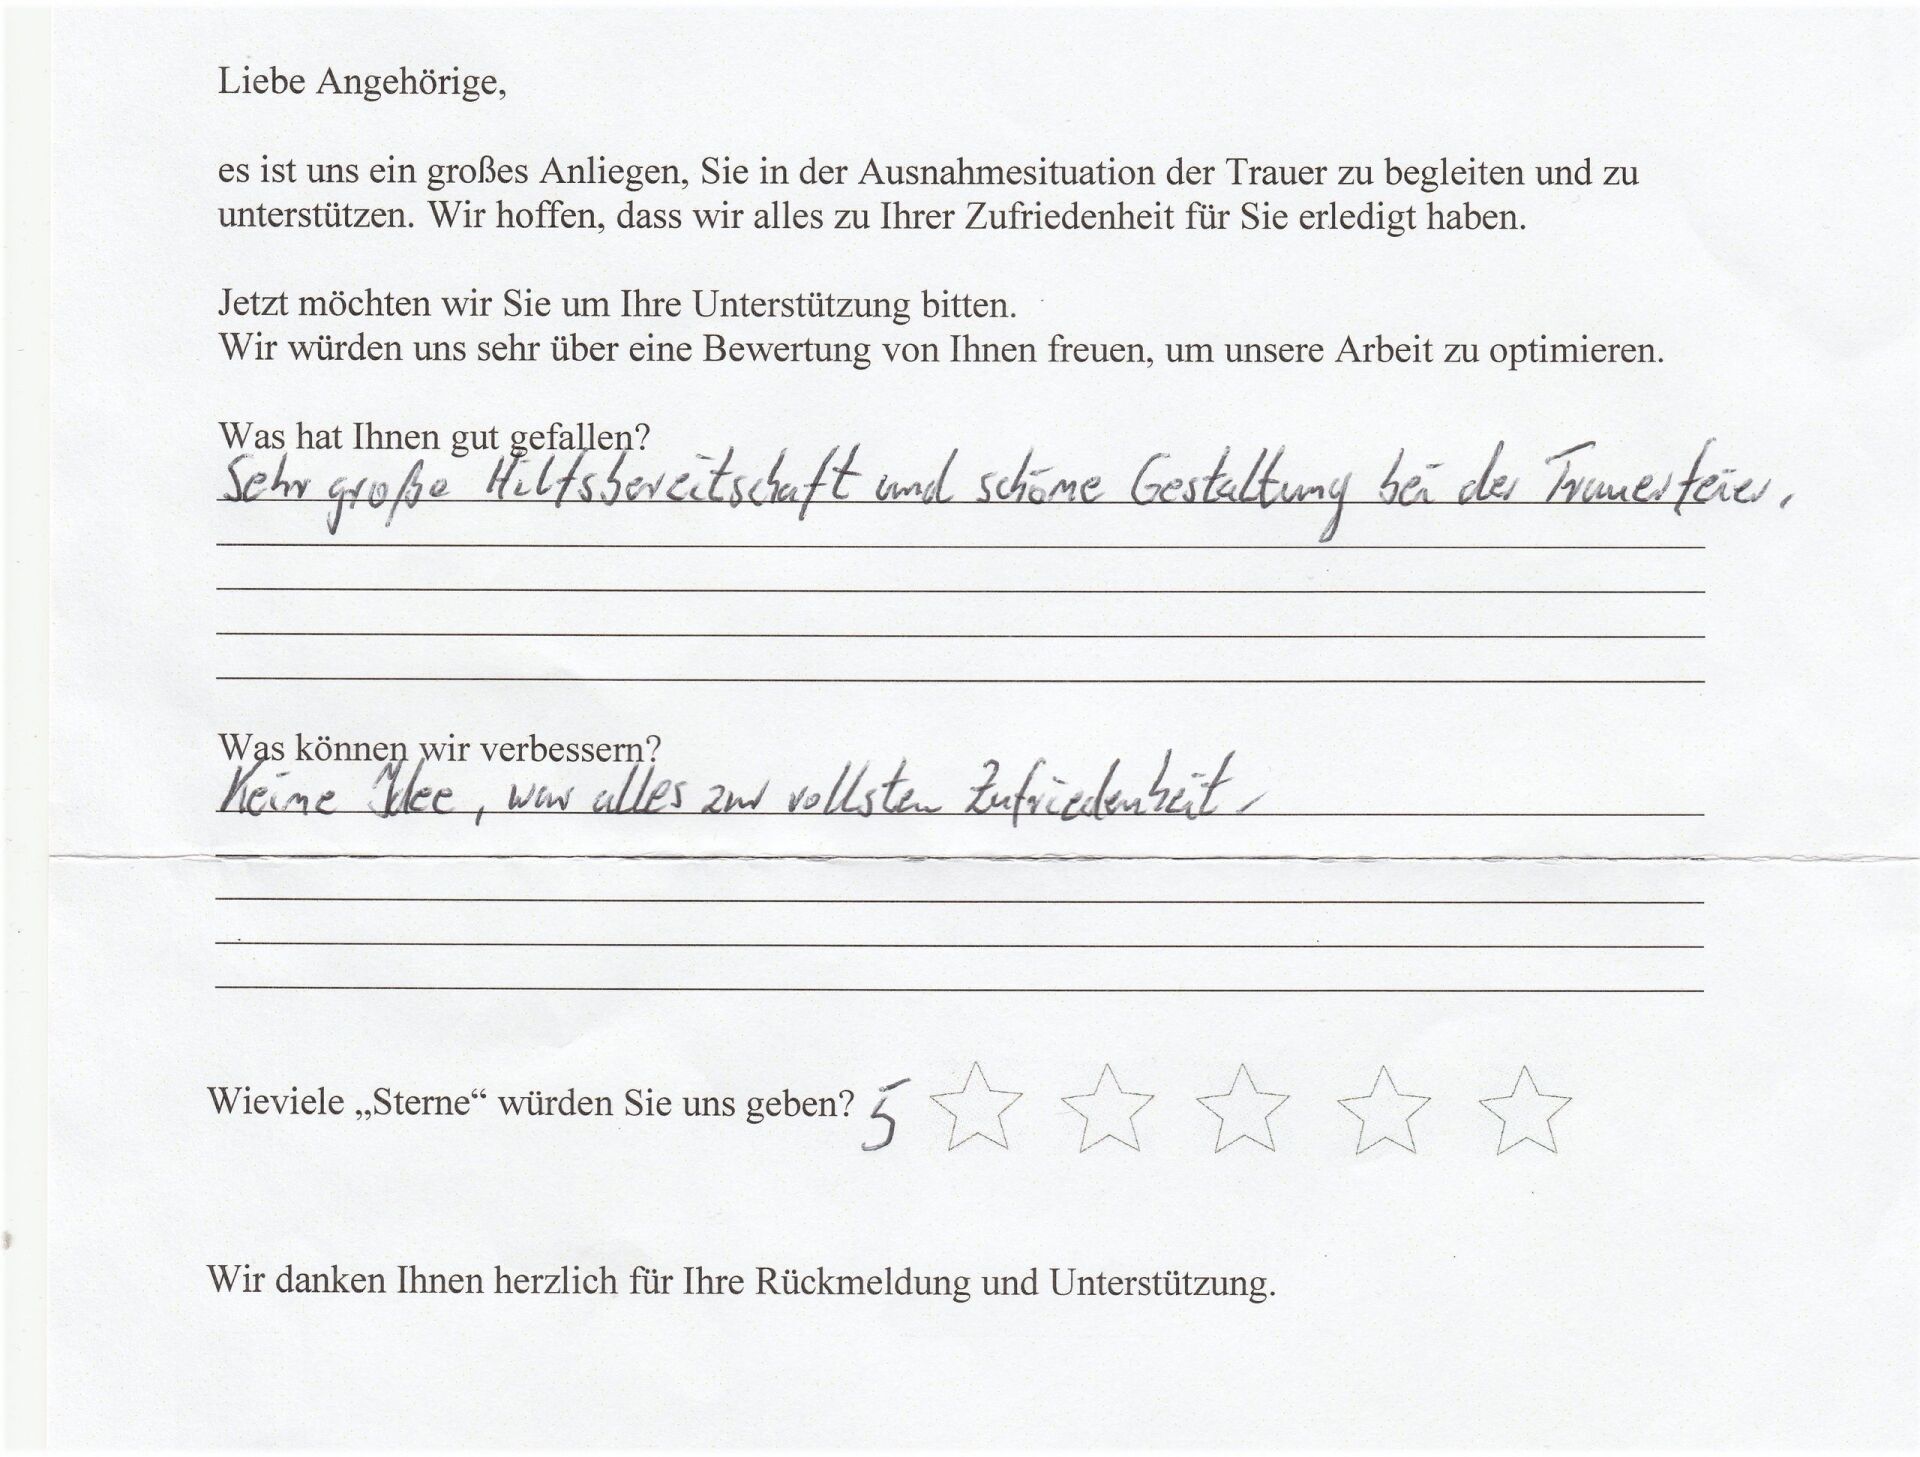 Liebe Angehörige,
es ist uns ein großes Anliegen, Sie in der Ausnahmesituation der Trauer zu begleiten und zu
unterstützen. Wir hoffen, dass wir alles zu Ihrer Zufriedenheit für Sie erledigt haben.
Jetzt möchten wir Sie um Ihre Unterstützung bitten.
Wir würden uns sehr über eine Bewertung von Ihnen freuen, um unsere Arbeit zu optimieren.
Was hat Ihnen gut gefallen?
Sehr große Hilfsbereitschaft und schöne Gestaltung bei der Trauerfeier.
Was können wir verbessern?
Keine Idee, war alles zur vollsten Zufriedenheit.
Wieviele „Sterne“ würden Sie uns geben? 5
Wir danken Ihnen herzlich für Ihre Rückmeldung und Unterstützung.